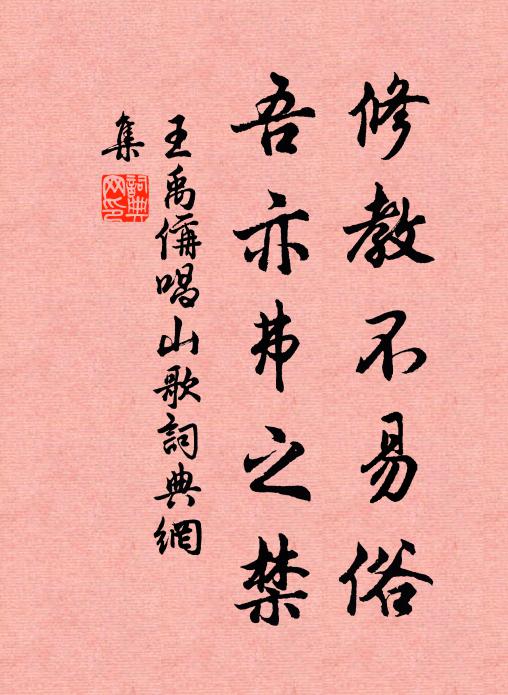 修教不易俗
吾亦弗之禁
王禹偁唱山歌詞典網
集
詞典
网印